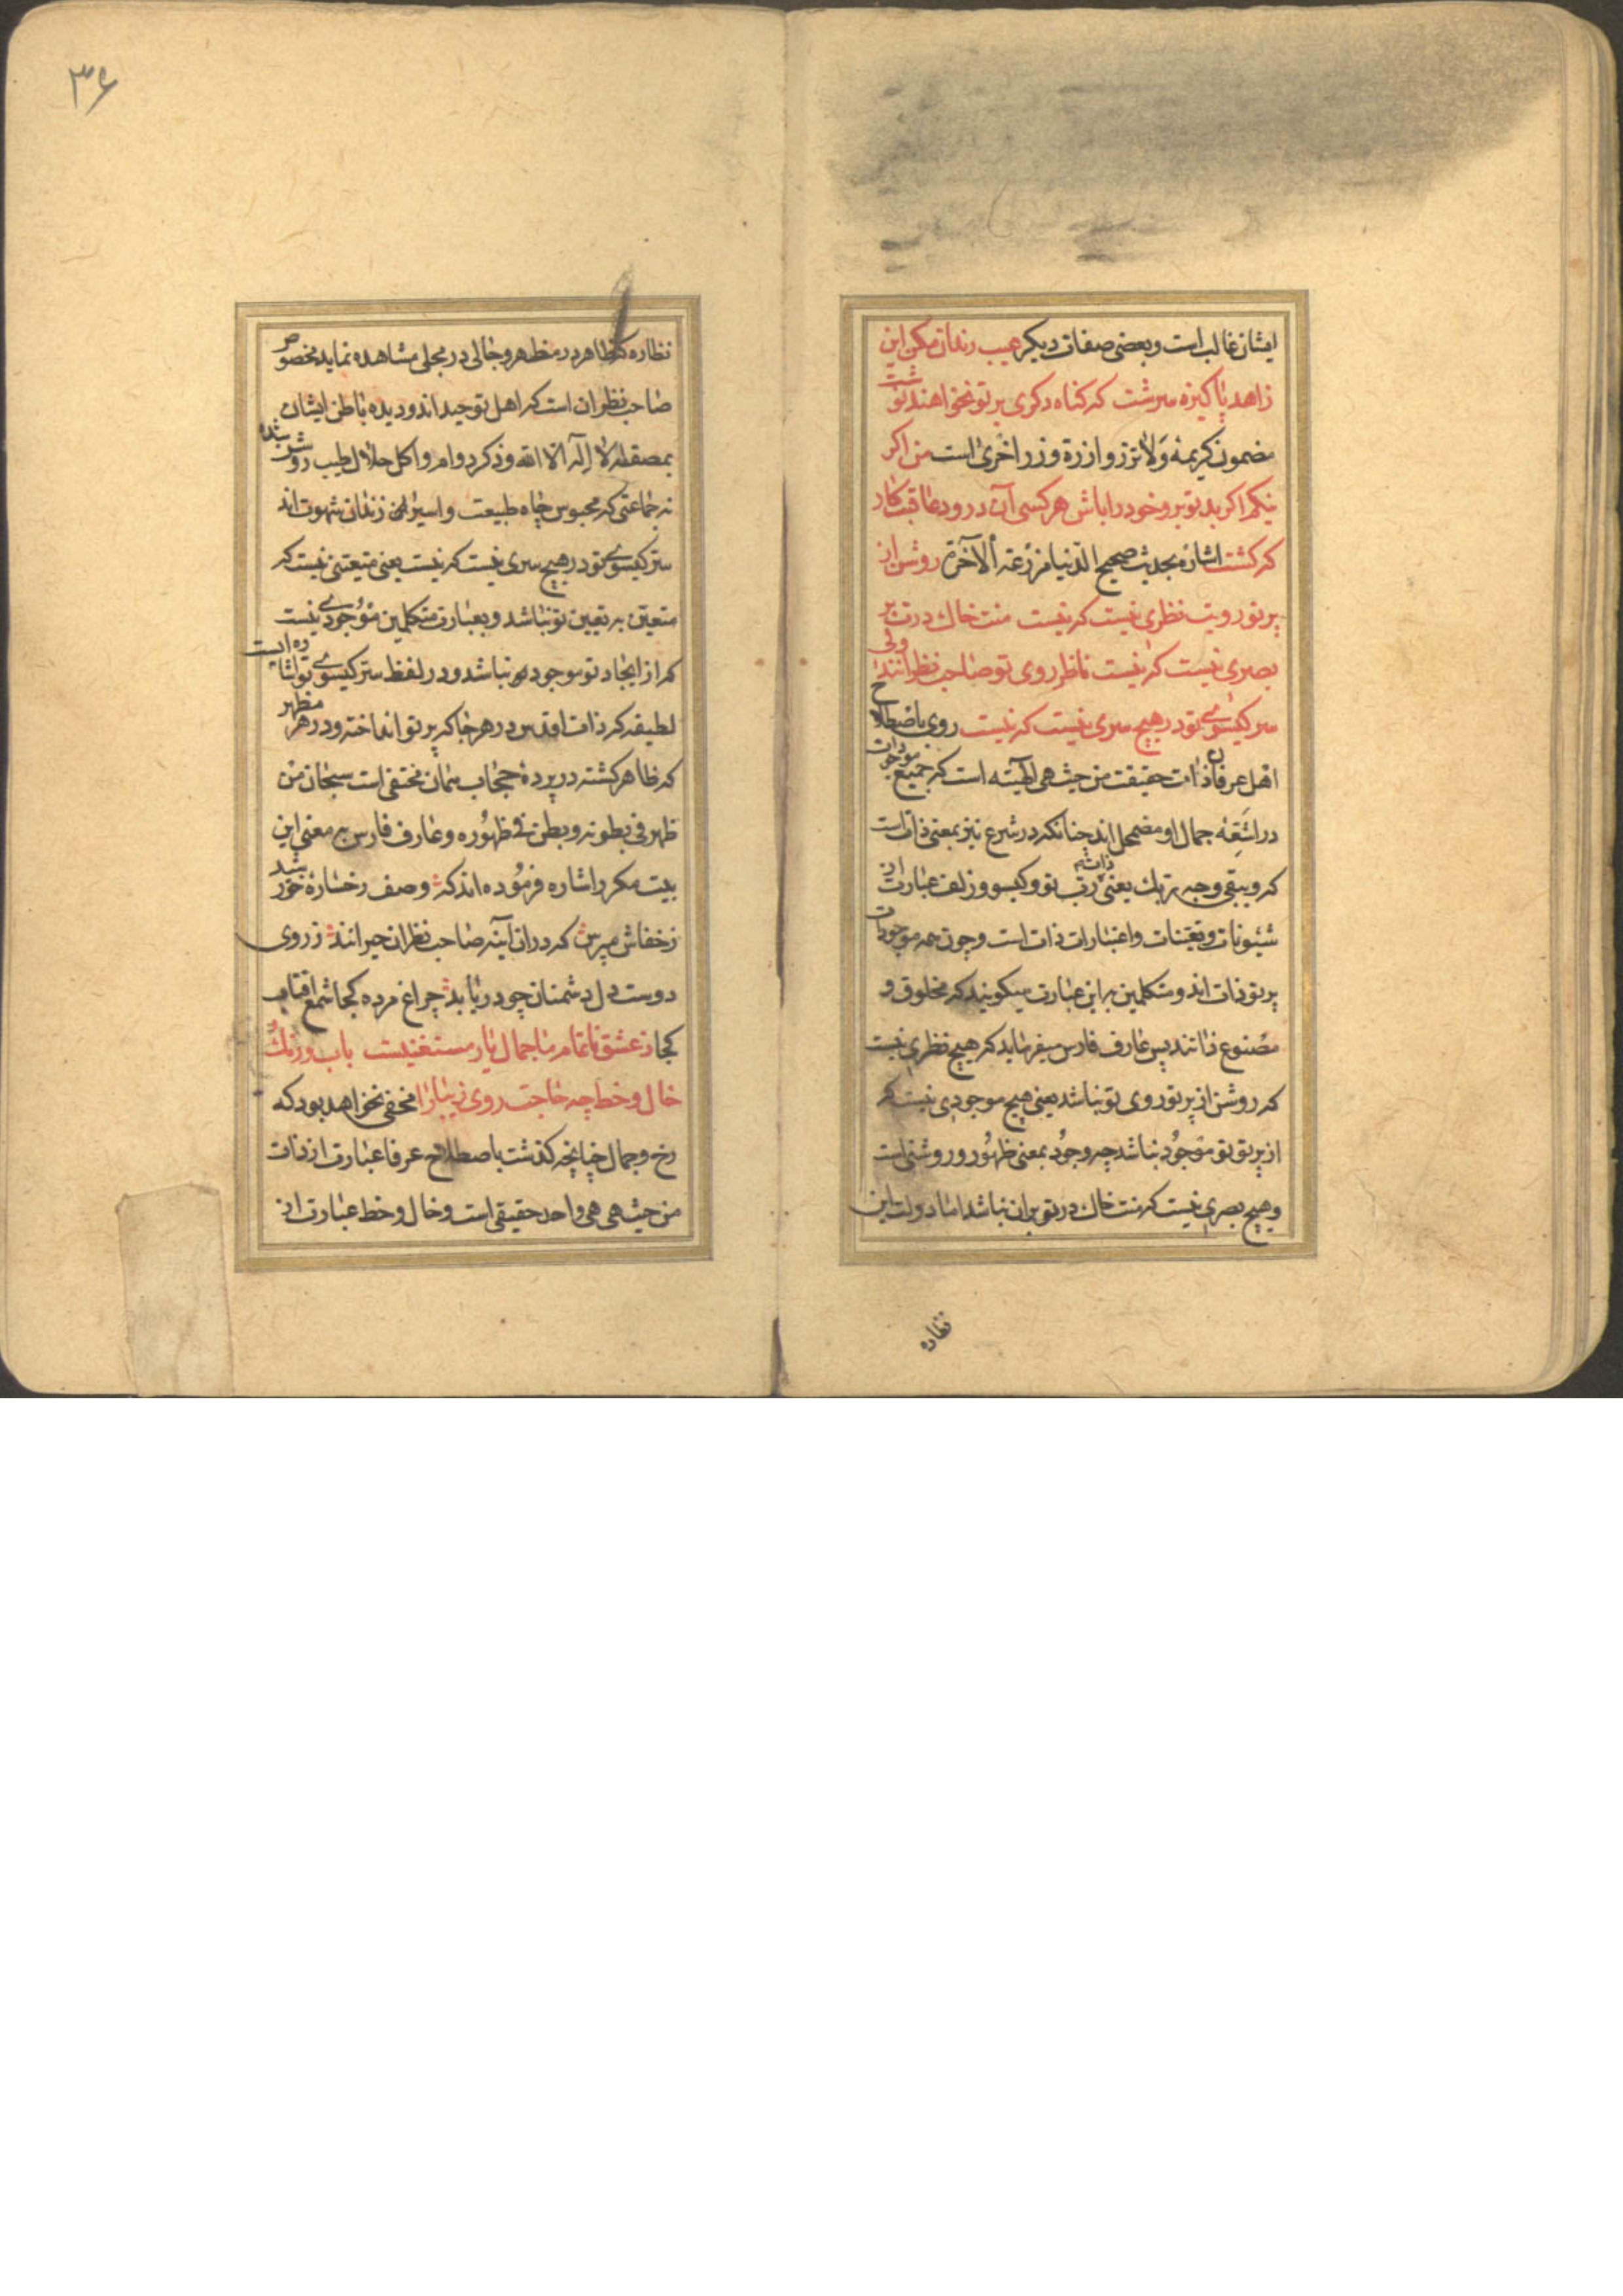 ایشان غالب است و بعضی صفات دیکر عیب رندان مکن این
زاهد پاکیزه سرشت که کناه دکری بر تو نخواهند نوشت
مضمون کریمهٔ وَلا تزر وازرة وزر اخری است من اکر
نیکم اکر بد تو برو خود را باش هر کسی آن درود عاقبت کار
که کشت اشاره بحدیث صحیح الدنیا مزرعة الآخرة روشن از
پرتو رویت نظری نیست که نیست منت خاک درت بر
بصری نیست که نیست ناظر روی تو صاحب نظرانند ولی
سر کیسوی تو در هیچ سری نیست که نیست روی باصطلاح
اهل عرفان ذات حقیقت من حیث هی الهیته است که جمیع موجودات
در اشعهٔ جمال او مضمحل اند چنانکه در شرع نیز بمعنی ذات است
که ویبقی وجه ربک یعنی ذاته رب تو و کیسو و زلف عبارت از
شیونات و تعینات و اعتبارات ذات است و چون همه موجودات
پرتو ذات اند و متکلمین به این عبارت میکویند که مخلوق و
مصنوع ذاتند پس عارف فارس میفرماید که هیچ نظری نیست
که روشن از پرتو روی تو نباشد یعنی هیچ موجودی نیست که
از پرتو تو موجود نباشد چه وجود بمعنی ظهور و روشنی است
و هیچ بصری نیست که منت خاک در تو بران نباشد اما دولت این
نظاره
۳۶
نظاره که ظاهر در مظهر و جالی در مجلی مشاهده نماید مخصوص
صاحب نظران است که اهل توحید اند و دیده باطن ایشان
بمصقله لا اله الا الله و ذکر دوام و اکل حلال طیب روشن شده
نه جماعتی که محبوس چاه طبیعت و اسیر این زندان شهوت اند
سر کیسوی تو در هیچ سری نیست که نیست یعنی متیعنی نیست که
متعین به تعین تو نباشد و بعبارت متکلمین موجودی نیست
که از ایجاد تو موجود نباشد و در لفظ سر کیسوی تو اشاره است
لطیفه که ذات اقدس در هر جا که پرتو انداخته و در هر مظهر
که ظاهر کشته در پردهٔ حجاب همان مختفی است سبحان من
ظهر فی بطونه و بطن فی ظهوره و عارف فارس به معنی این
بیت مکرر اشاره فرموده اند که وصف رخسارهٔ خورشید
ز خفاش مپرس که دران آینه صاحب نظران حیرانند ز روی
دوست دل دشمنان چه دریابد چراغ مرده کجا شمع افتاب
کجا ز عشق ناتمام ما جمال یار مستغنیست باب و رنک
خال و خط چه حاجت روی زیبا را مخفی نخواهد بود که
رخ و جمال چنانچه کذشت باصطلاح عرفا عبارت از ذات
من حیث هی هی واحد حقیقی است و خال و خط عبارت از